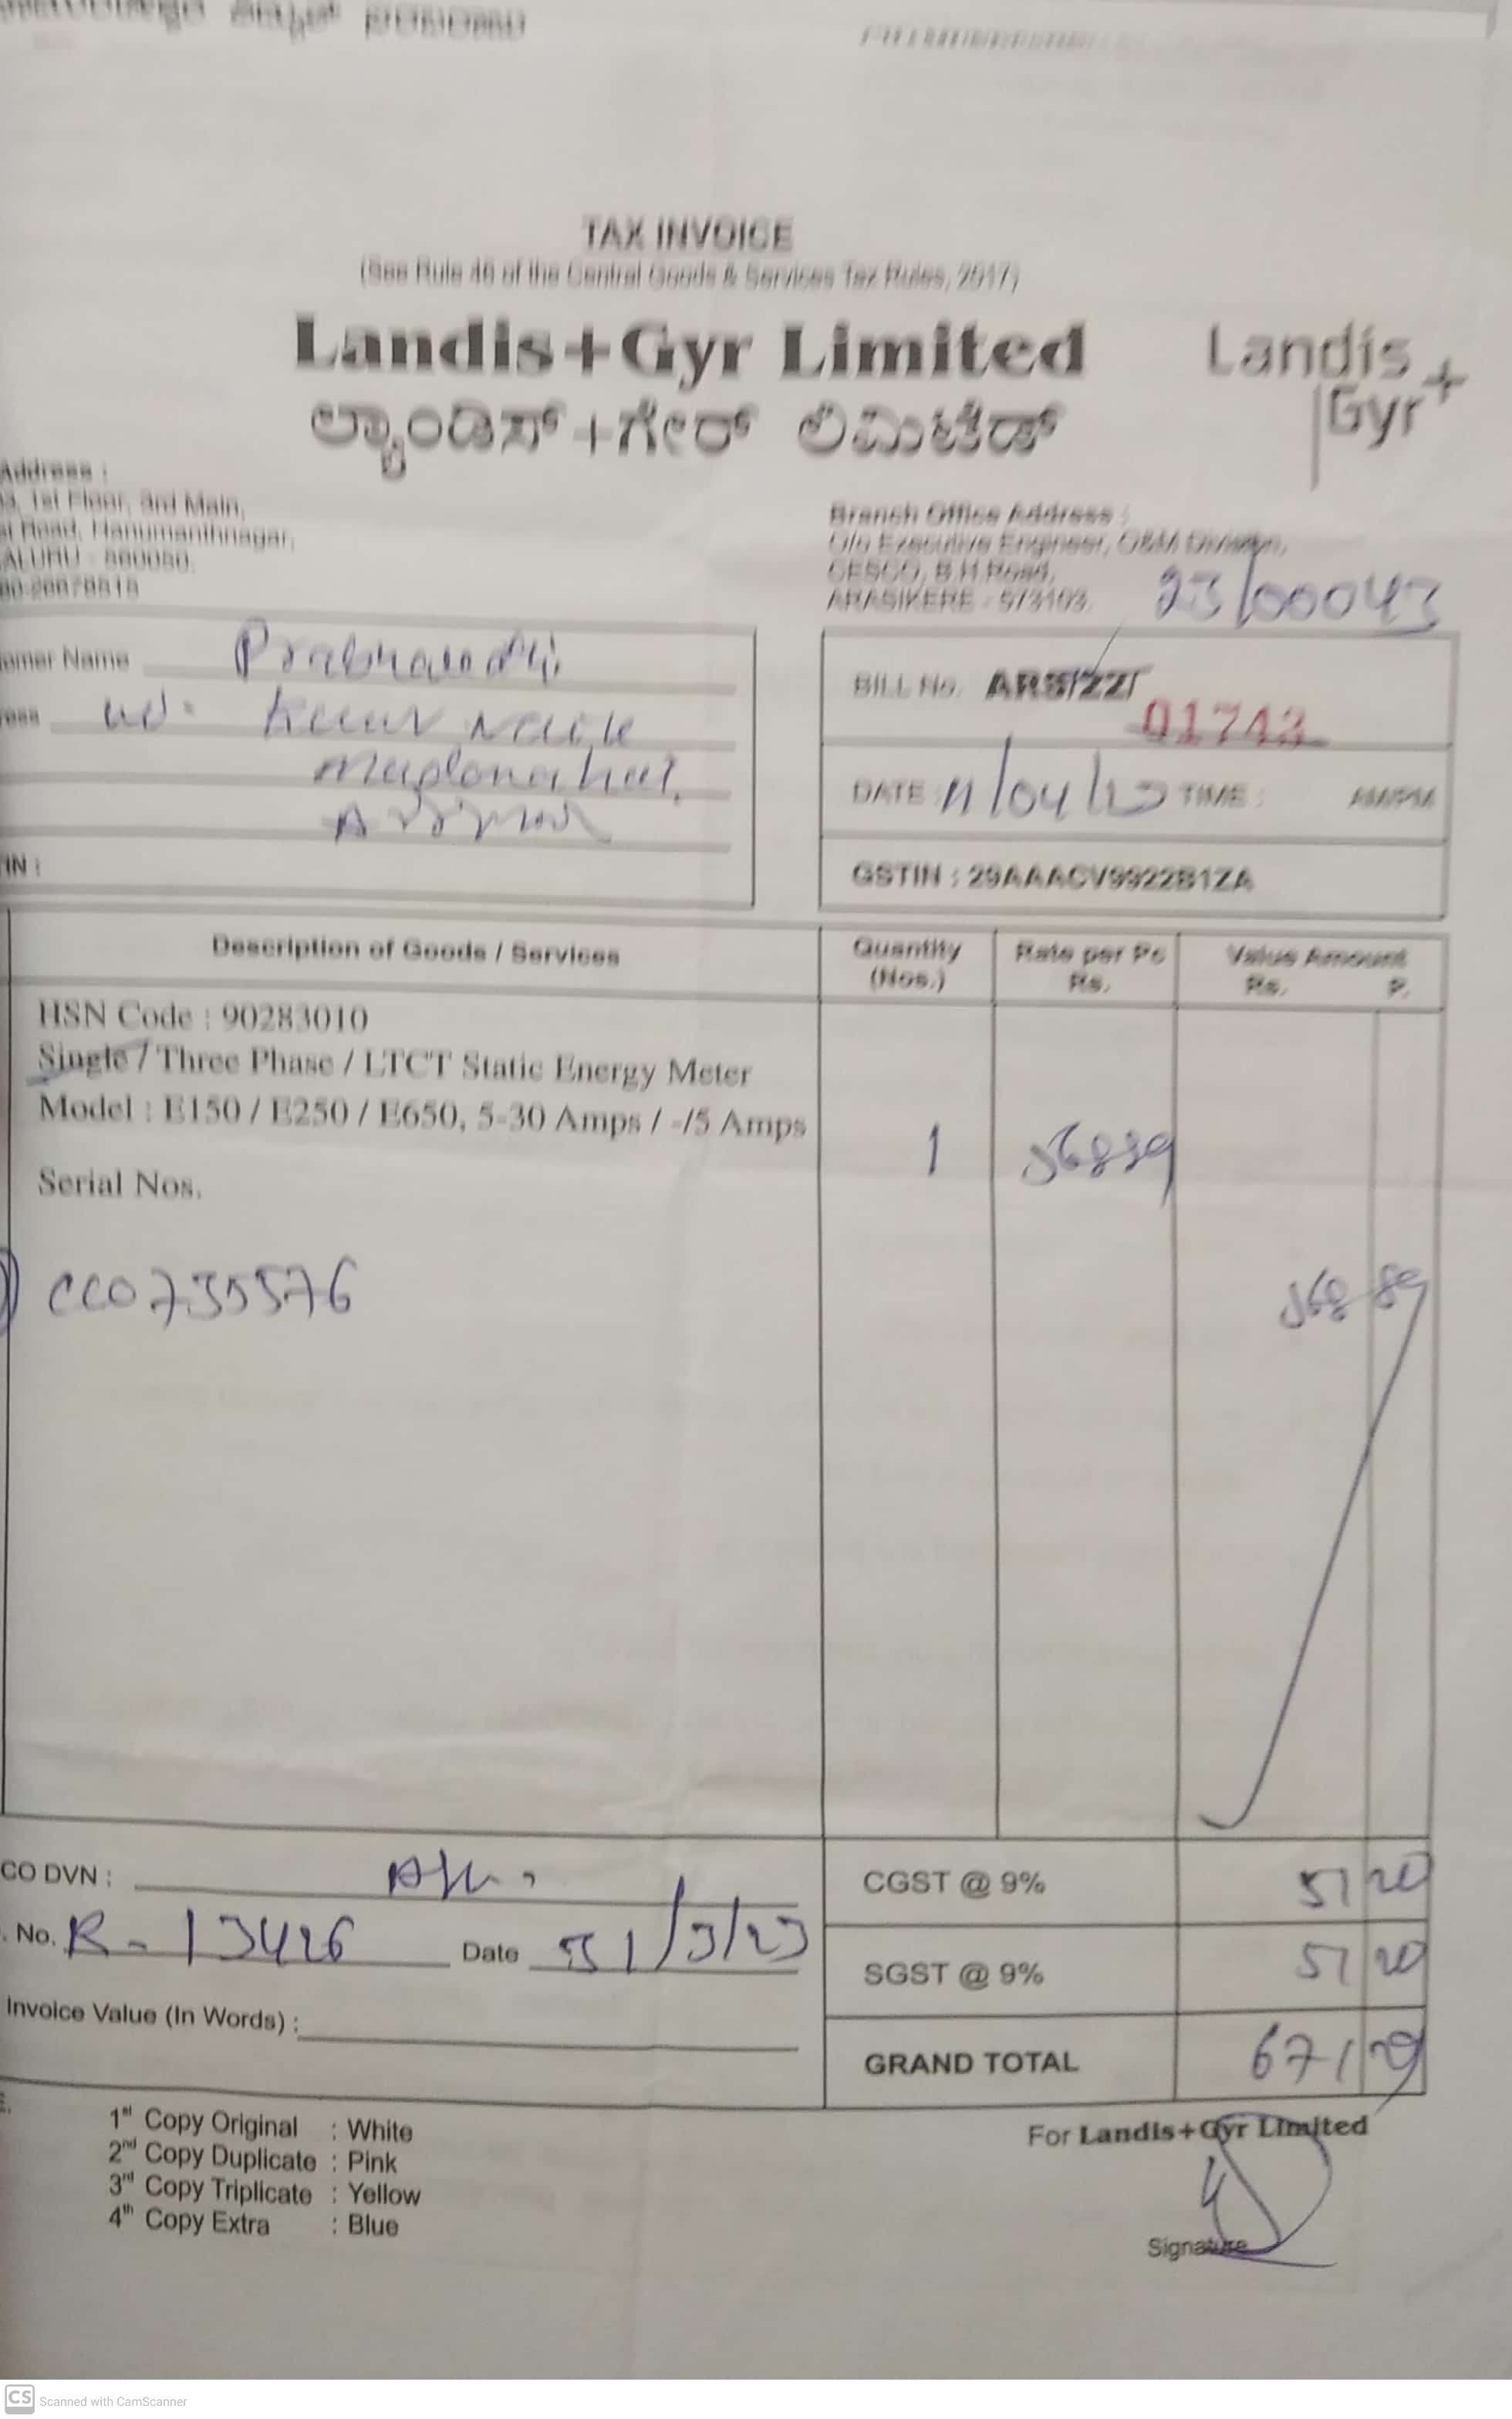 TAX INVOICE
(See Rule 46 of the Central Goods & Services Tax Rules, 2017)
Landis+Gyr Limited
ಲ್ಯಾಂಡಿಸ್+ಗೇರ್ ಲಿಮಿಟೆಡ್
Landis
Gyr+
Address :
1st Floor, 3rd Main,
Road, Hanumanthnagar,
ALURU - 560050.
Branch Office Address :
O/o Executive Engineer, O&M Division,
CESCO, B.H.Road,
ARASIKERE - 573103.
23/00043
omer Name
BILL No. ARS/22/
01743
DATE : 11/04/23 TIME : AM/PM
GSTIN : 29AAACV9922B1ZA
IN :
Description of Goods / Services
Quantity (Nos.)
Rate per Pc Rs.
Value Amount Rs. P.
HSN Code : 90283010
Single / Three Phase / LTCT Static Energy Meter
Model : E150 / E250 / E650, 5-30 Amps / -/5 Amps
1
56889
Serial Nos.
CC0735576
568 89
CO DVN :
CGST @ 9% 51 20
. No. R-13426 Date 31/3/23
SGST @ 9% 51 20
Invoice Value (In Words) :
GRAND TOTAL 671 29
1st Copy Original : White
2nd Copy Duplicate : Pink
3rd Copy Triplicate : Yellow
4th Copy Extra : Blue
For Landis+Gyr Limited
Signature
CS Scanned with CamScanner